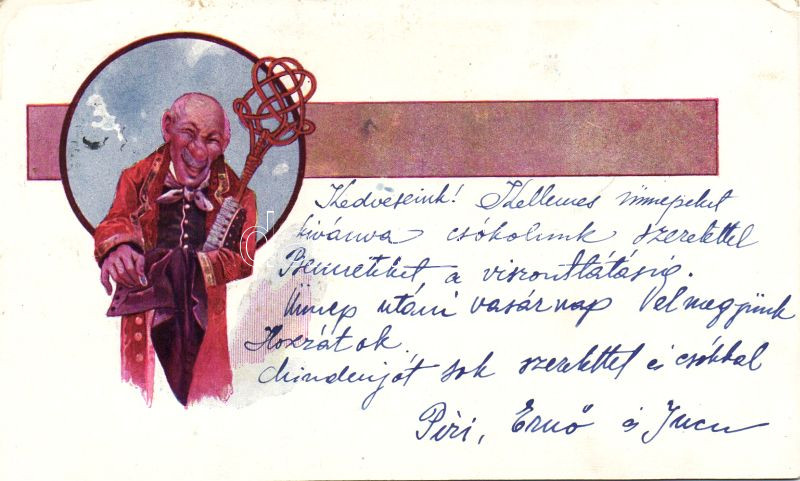 Kedveseink! Kellemes ünnepeket
kivánva csókolunk szeretettel
Benneteket a viszontlátásig.
Ünnep utáni vasárnap felmegyünk
Hozzátok.
Mindenjót sok szeretettel és csókkal
Piri, Ernő és Jucu